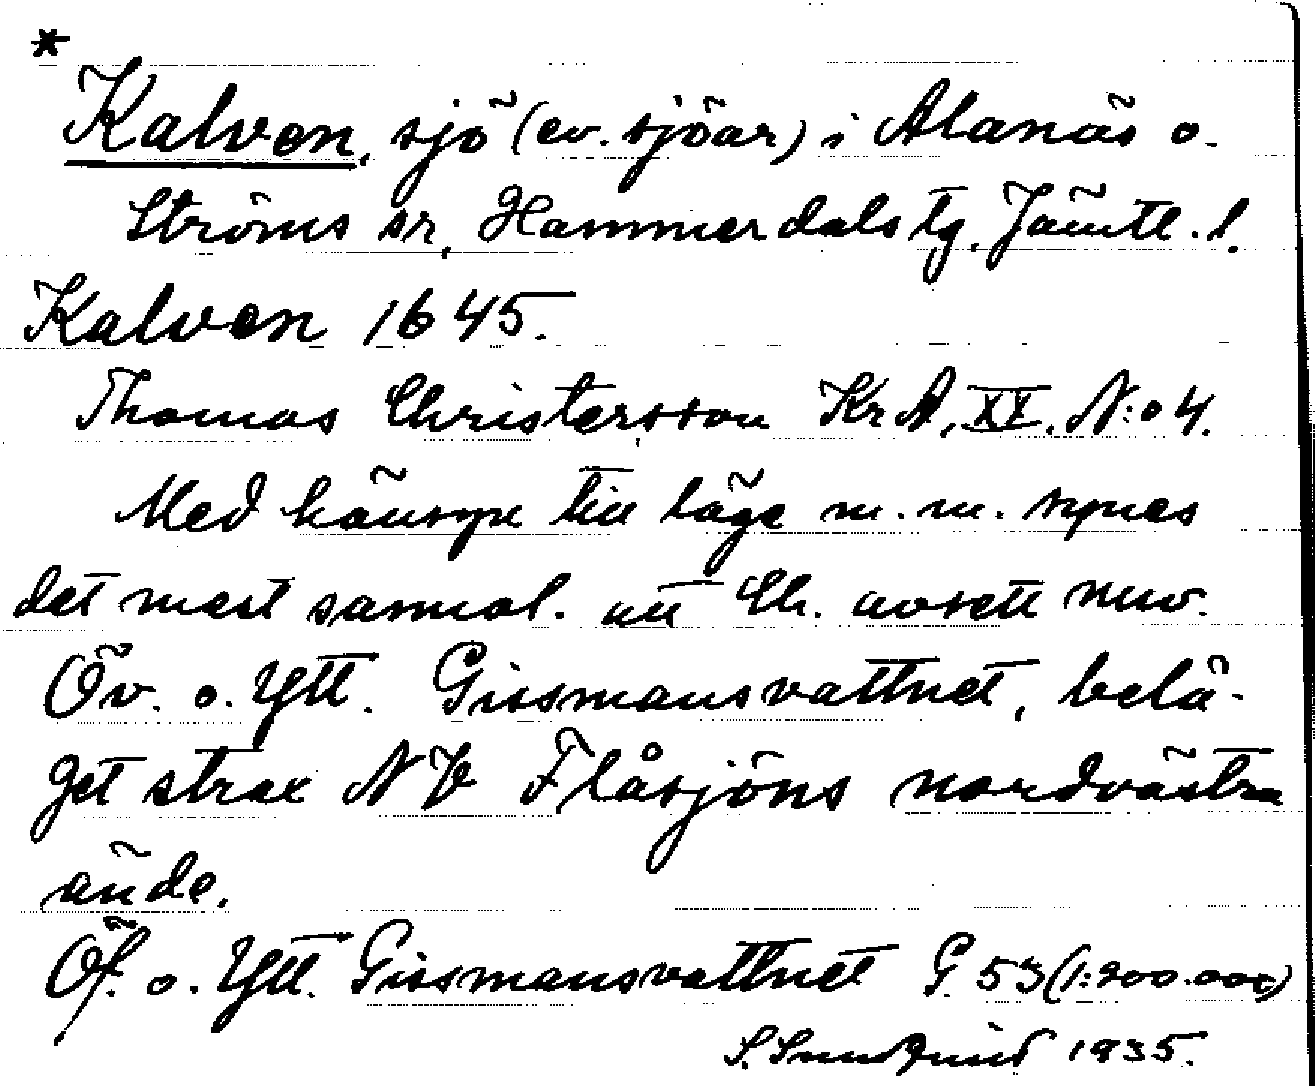 *
Kalven, sjö (ev. sjöar) i Alanäs o.
Ströms sr, Hammerdals tg. Jämtl. l.
Kalven 1645.
Thomas Christersson Kr A, XX. N:o 4.
Med hänsyn till läge m. m. synes
det mest sannol. att Ch. avsett nuv.
Öv. o. Ytt. Gissmansvattnet, belä-
get strax NV Flåsjöns nordvästra
ände.
Öf. o. Ytt. Gissmansvattnet G. 53 (1:200.000)
S. Sundqvist 1935.